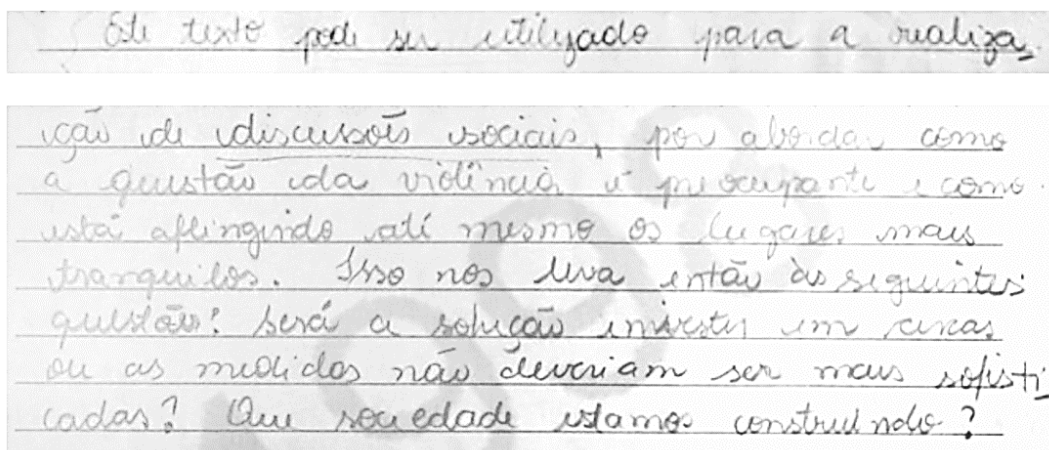 Este texto pode ser utilizado para a realiza
ção de discussões sociais, por abordar como
a questão da violência é preocupante e como
está aflingindo até mesmo os lugares mais
tranquilos. Isso nos leva então às seguintes
questões: Será a solução investir em cercas
ou as medidas não deveriam ser mais sofisti
cadas? Que sociedade estamos construindo?